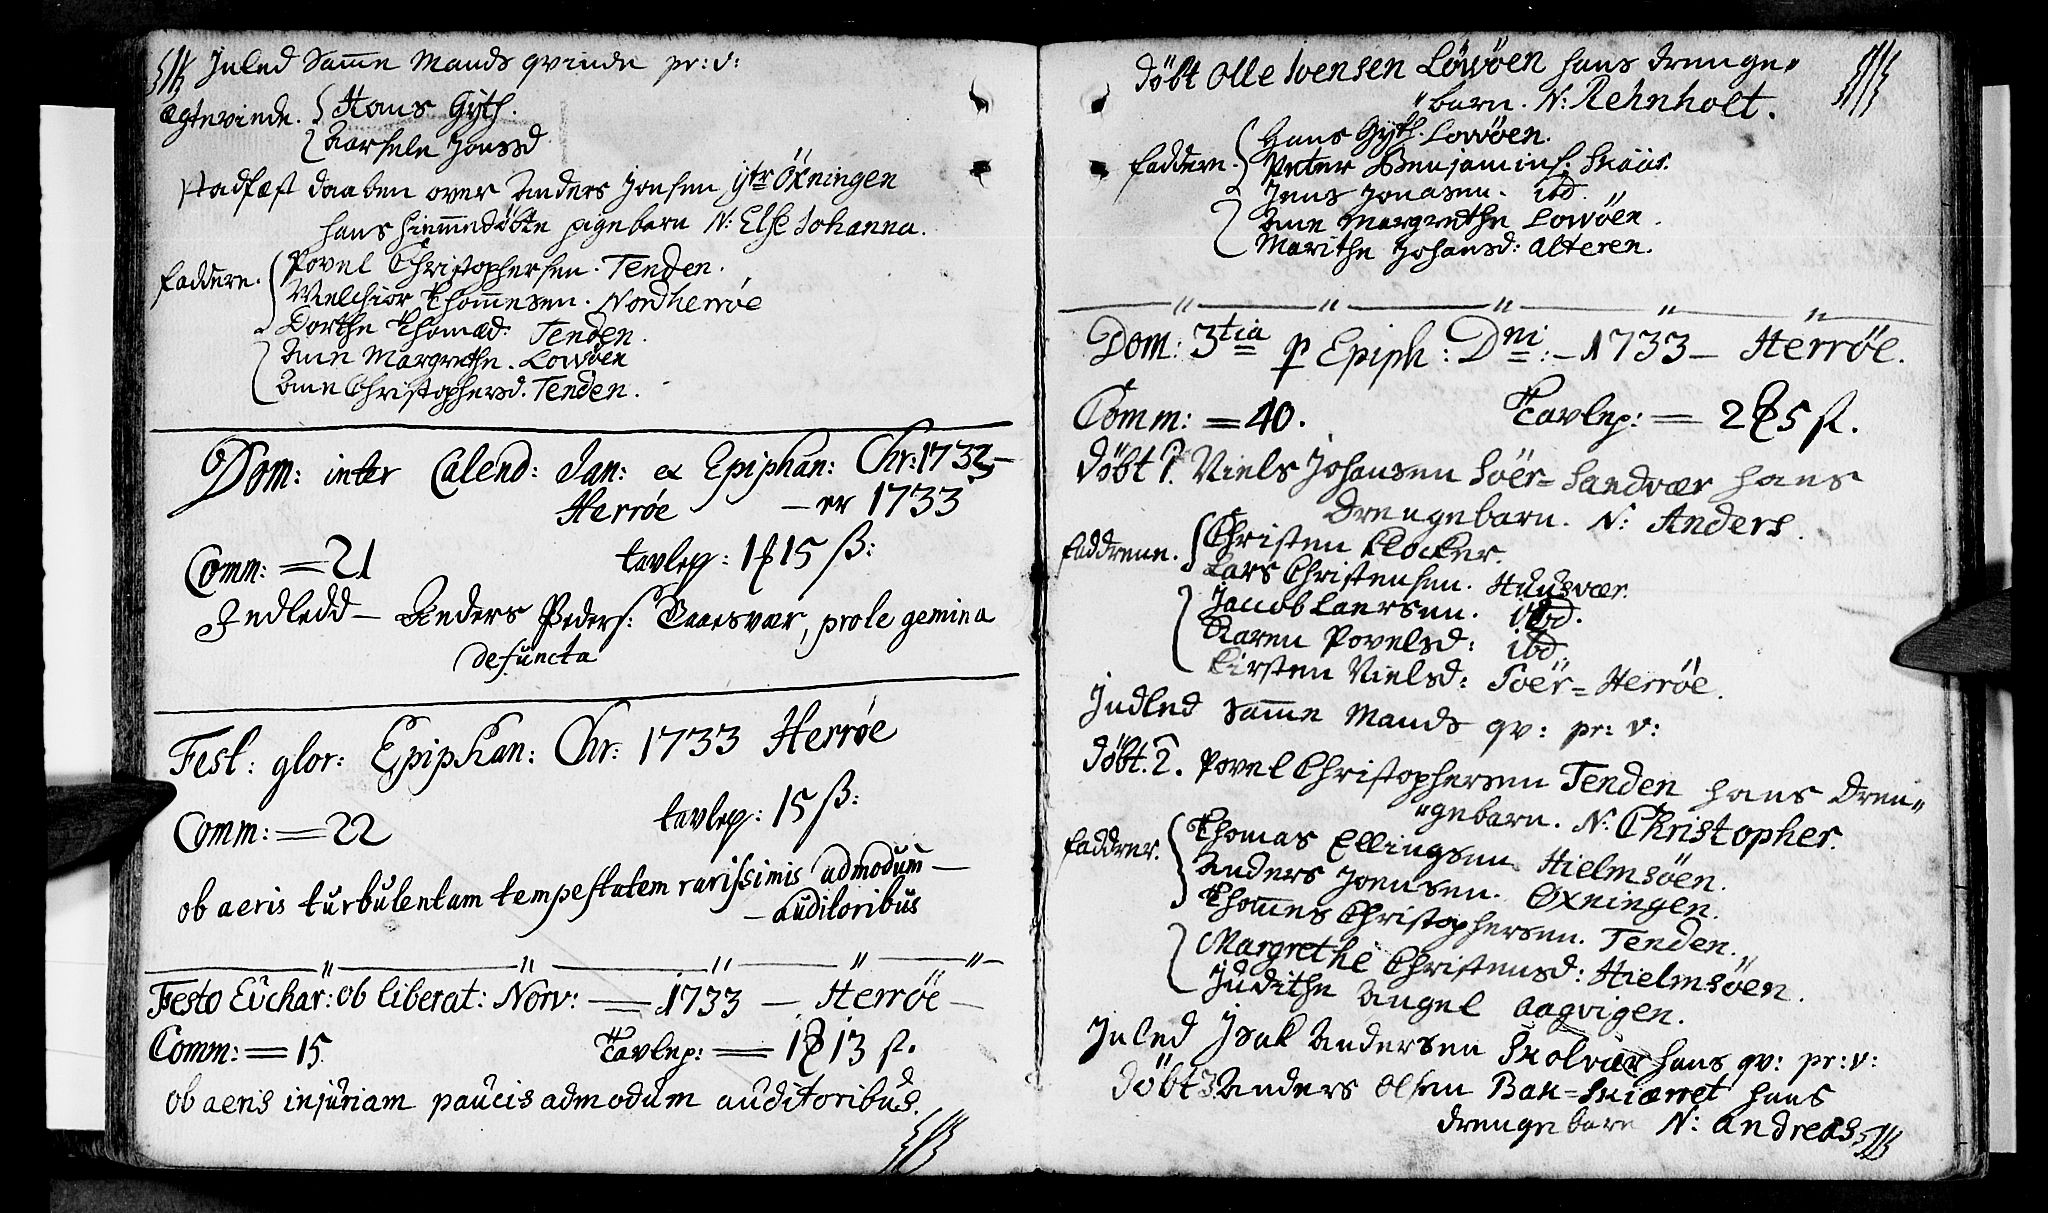 Inled Samme Mands qvinde pr: v:
ægteviende. Hans Gyth.
Karsele Jonsd
stadfæst daaben over Anders Jensen Ytr Öxningen
hans hiemmedöbte pigebarn N: Else Johanna.
faddere. Povel Christophersen. Tenden.
Melchior Thommesen. Nordherröe
Dorthe Thomæd: Tenden.
Ane Margrethe. Lowöen
Ane Christophersd. Tenden.
Dom: inter Calend: Jan: et Epiphan: Chr: 1732
Herröe — er 1733
Comm: = 21 tavlep: 1 15 ß:
Indledd — Anders Peders: Taaesvær, prole gemina
defuncta
Fest: glor: Epiphan: Chr: 1733 Herröe
Comm: = 22 tavlep: 15 ß:
ob aeris turbulentam tempestatem rarissimis admodum —
— auditoribus
Festo Euchar: ob liberat: Norv: — 1733 — Herröe —
Comm: = 15 Tavlep: = 1 13 ß.
ob aeris injuriam paucis admodum auditoribus.
döbt Olle Ivensen Löwöen hans drenge"
"barn. N: Rehnholt.
faddere. Hans Gyth. Lowöen.
Peter Benjamins: Skaar.
Jens Jonasen. ibd.
Ane Margrethe Lowöen.
Marithe Johansd: Alteren.
Dom: 3tia p Epiph: Dni: — 1733 — Herröe.
Comm: = 40. Tavlep: = 2 5 ß.
döbt 1. Niels Johansen Söer= Sandvær hans
Drengebarn. N: Anders.
faddrene. Christen Klocker.
Lars Christensen. Huusvær.
Jaccob Laersen. ibd.
Karen Povelsd: ibd.
Kirsten Nielsd: Söer= Herröe.
Indled Samme Mands qv: pr: v:
döbt. 2. Povel Christophersen Tenden hans Dren"
"gebarn. N: Christopher.
faddrer. Thomas Ellingsen Hielmsöen.
Anders Joensen. Öxningen.
Thommes Christophersen. Tenden.
Margrethe Christensd: Hielmsöen.
Judithe Angel Aagvigen.
Inled Isak Andersen Skolvær hans qv: pr: v:
döbt 3. Anders Olsen Bak= Skiærret hans
drengebarn N: Andreas